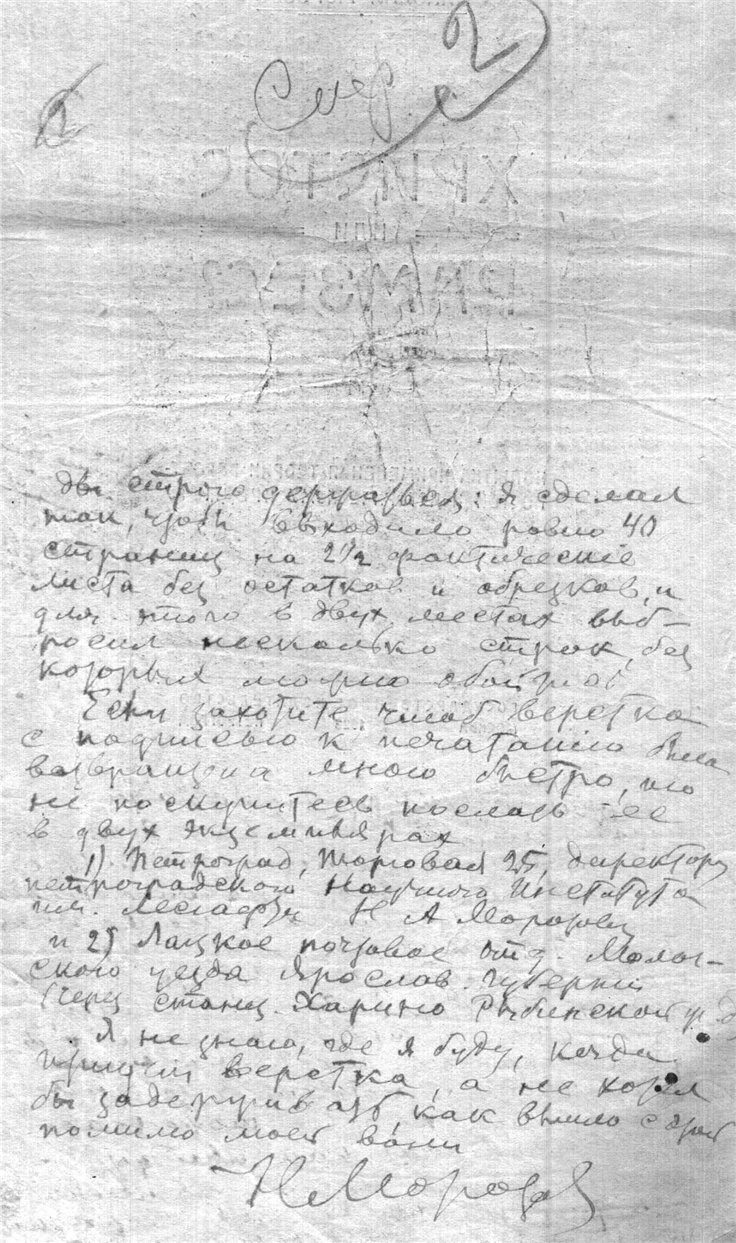 2
Смер.
ХРИСТОС
ИЛИ
РАМЗЕС?
бы строго держаться: я сделал
так, чтоб выходило ровно 40
страниц на 2½ фактические
листа без остатков и обрезков, и
для этого в двух местах выб-
росил несколько строк, без
которых можно обойтись
Если захотите чтоб верстка
с подписью к печатанию была
возвращена мною быстро, то
не поскупитесь послать ее
в двух экземплярах
1) Петроград, Торговая 25, директору
петроградского Научного Института
им. Лесгафта Н А Морозову
и 2) Лацкое почтовое отд. Молог-
ского уезда Ярослав. губернии
(через станц. Харино Рыбинской ж. д.)
Я не знаю, где я буду, когда
придет верстка, а не хотел
бы задерживать, как вышло с этой
помимо моей вины
Н Морозов